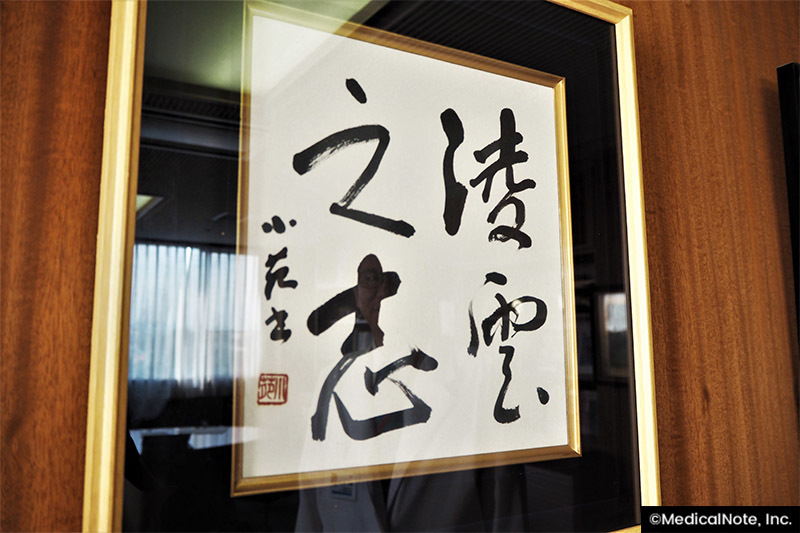 凌雲
之志
小苑書
©MedicalNote, Inc.